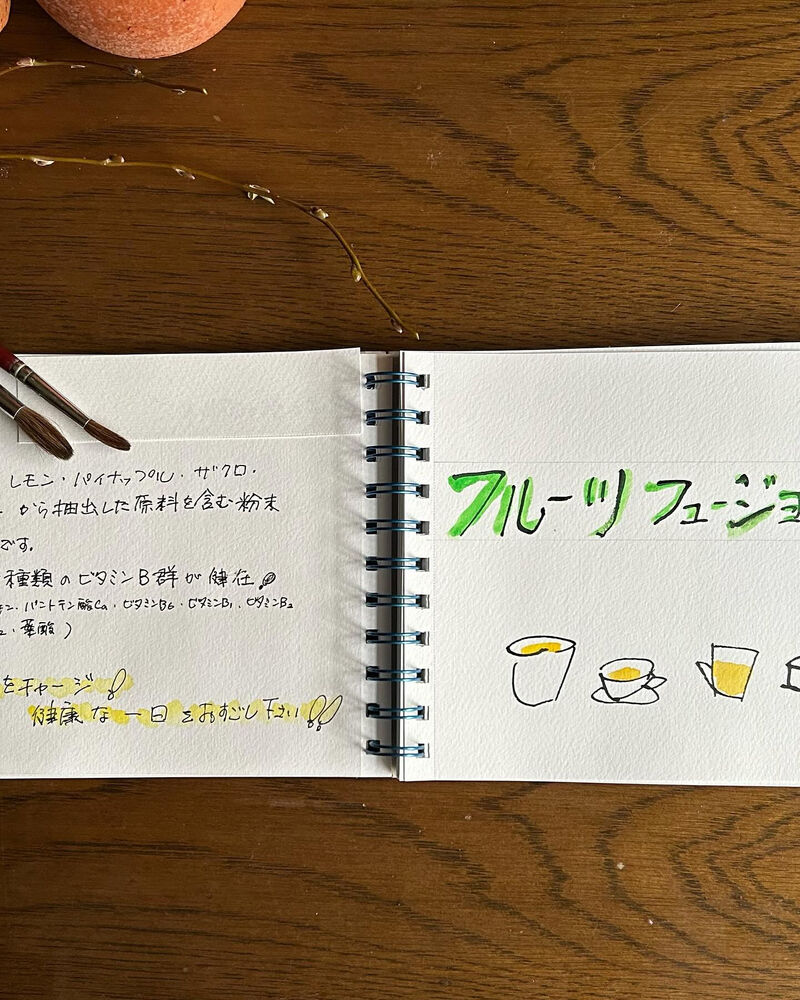 レモン・パイナップル・ザクロ・
から抽出した原料を含む粉末
です。
種類のビタミンB群が健在!
パントテン酸Ca・ビタミンB6・ビタミンB1、ビタミンB2
・葉酸)
をチャージ!
健康な一日をおすごし下さい!!
フルーツフュージョ